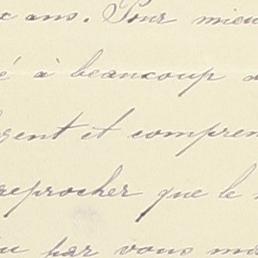 ans. Pour mieu
é à beaucoup
gent et compren
reprocher que le
par vous